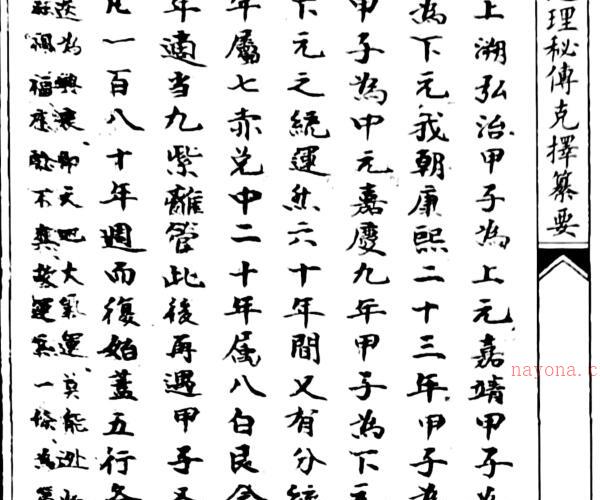 理秘傳克擇纂要
上溯弘治甲子為上元嘉靖甲子為
為下元我朝康熙二十三年甲子為
甲子為中元嘉慶九年甲子為下元
下元之統運然六十年間又有分統
年屬七赤兌中二十年屬八白艮
年適當九紫離管此後再遇甲子
凡一百八十年週而復始蓋五行各
迭為興衰即天地大氣運莫能逃
禍福應驗不爽故運氣一條為
nayona.c